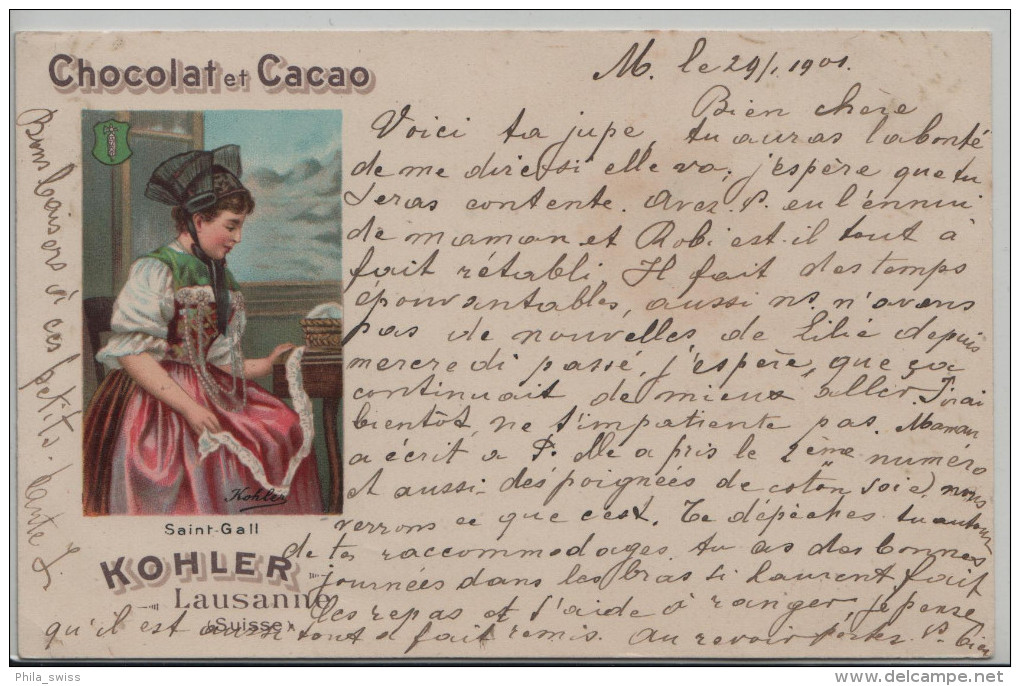 Chocolat et Cacao
M. le 29/1. 1901.
Bien chère
Voici ta jupe, tu auras la bonté
de me dire si elle va, j'espère que tu
seras contente. Avez. P. eu l'ennui
de maman et Robi est-il tout à
fait rétabli. Il fait des temps
épouvantables, aussi ns. n'avons
pas de nouvelles de Lilie depuis
mercredi passé, j'espère, que ça
continuait de mieux aller. J'irai
bientôt, ne s'impatiente pas. Maman
a écrit a P. elle a pris le 2ème numéro
et aussi des poignées de coton soie, nous
verrons ce que c'est. Te dépêches tu autour
de tes raccommodages. tu as des bonnes
journées dans les bras si Laurent fait
les repas et t'aide à ranger, je pense
qu'il est aussi tout a fait remis. Au revoir
Bons baisers à ces petits.
Kohler
Saint-Gall
KOHLER
Lausanne
(Suisse)
Phila_swiss